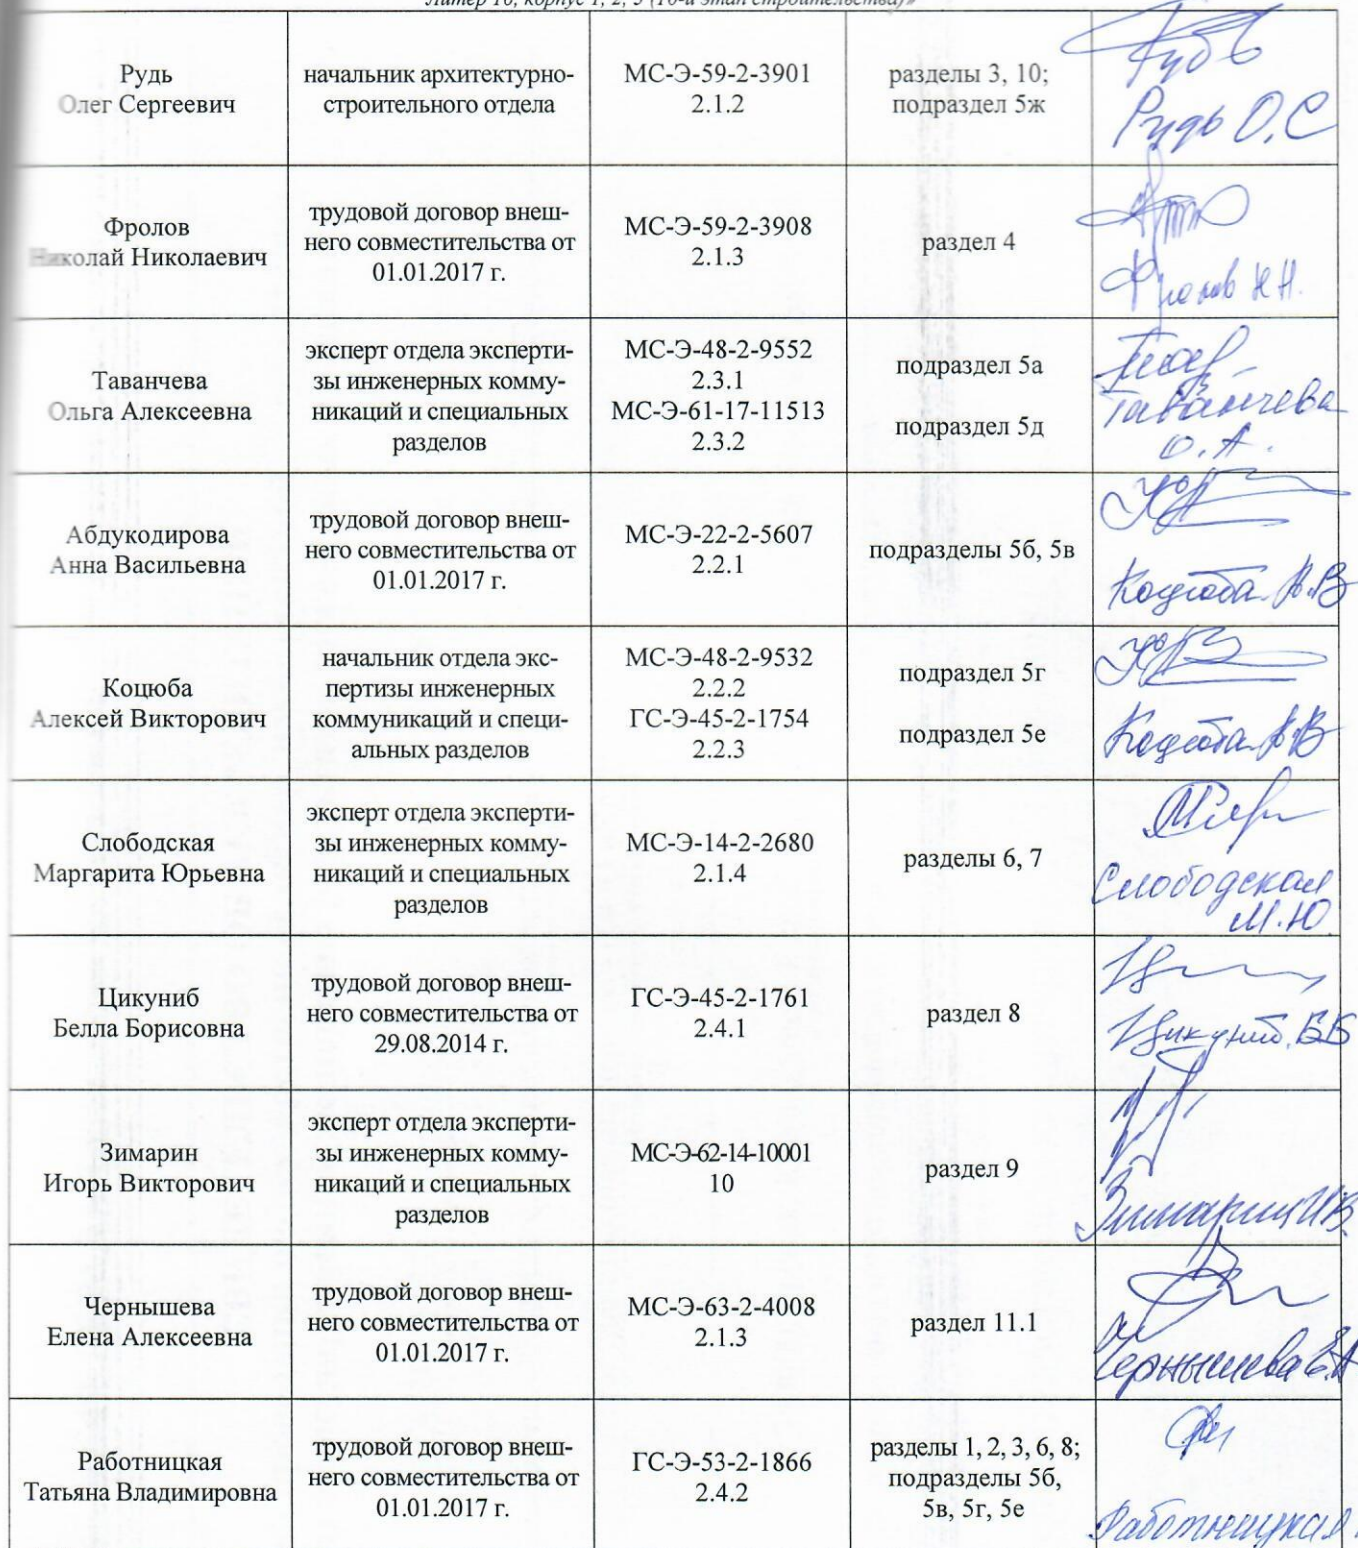 Литер 16, корпус 1, 2, 3 (16-й этап строительства)»
Рудь
Олег Сергеевич
начальник архитектурно-
строительного отдела
МС-Э-59-2-3901
2.1.2
разделы 3, 10;
подраздел 5ж
Рудь О.С
Фролов
Николай Николаевич
трудовой договор внеш-
него совместительства от
01.01.2017 г.
МС-Э-59-2-3908
2.1.3
раздел 4
Фролов Н.Н.
Таванчева
Ольга Алексеевна
эксперт отдела эксперти-
зы инженерных комму-
никаций и специальных
разделов
МС-Э-48-2-9552
2.3.1
МС-Э-61-17-11513
2.3.2
подраздел 5а
подраздел 5д
Таванчева
О.А.
Абдукодирова
Анна Васильевна
трудовой договор внеш-
него совместительства от
01.01.2017 г.
МС-Э-22-2-5607
2.2.1
подразделы 5б, 5в
Коцюба А.В
Коцюба
Алексей Викторович
начальник отдела экс-
пертизы инженерных
коммуникаций и специ-
альных разделов
МС-Э-48-2-9532
2.2.2
ГС-Э-45-2-1754
2.2.3
подраздел 5г
подраздел 5е
Коцюба А.В
Слободская
Маргарита Юрьевна
эксперт отдела эксперти-
зы инженерных комму-
никаций и специальных
разделов
МС-Э-14-2-2680
2.1.4
разделы 6, 7
Слободская
М.Ю.
Цикуниб
Белла Борисовна
трудовой договор внеш-
него совместительства от
29.08.2014 г.
ГС-Э-45-2-1761
2.4.1
раздел 8
Цикуниб. ББ
Зимарин
Игорь Викторович
эксперт отдела эксперти-
зы инженерных комму-
никаций и специальных
разделов
МС-Э-62-14-10001
10
раздел 9
Зимарин И.В.
Чернышева
Елена Алексеевна
трудовой договор внеш-
него совместительства от
01.01.2017 г.
МС-Э-63-2-4008
2.1.3
раздел 11.1
Чернышева Е.А
Работницкая
Татьяна Владимировна
трудовой договор внеш-
него совместительства от
01.01.2017 г.
ГС-Э-53-2-1866
2.4.2
разделы 1, 2, 3, 6, 8;
подразделы 5б,
5в, 5г, 5е
Работницкая